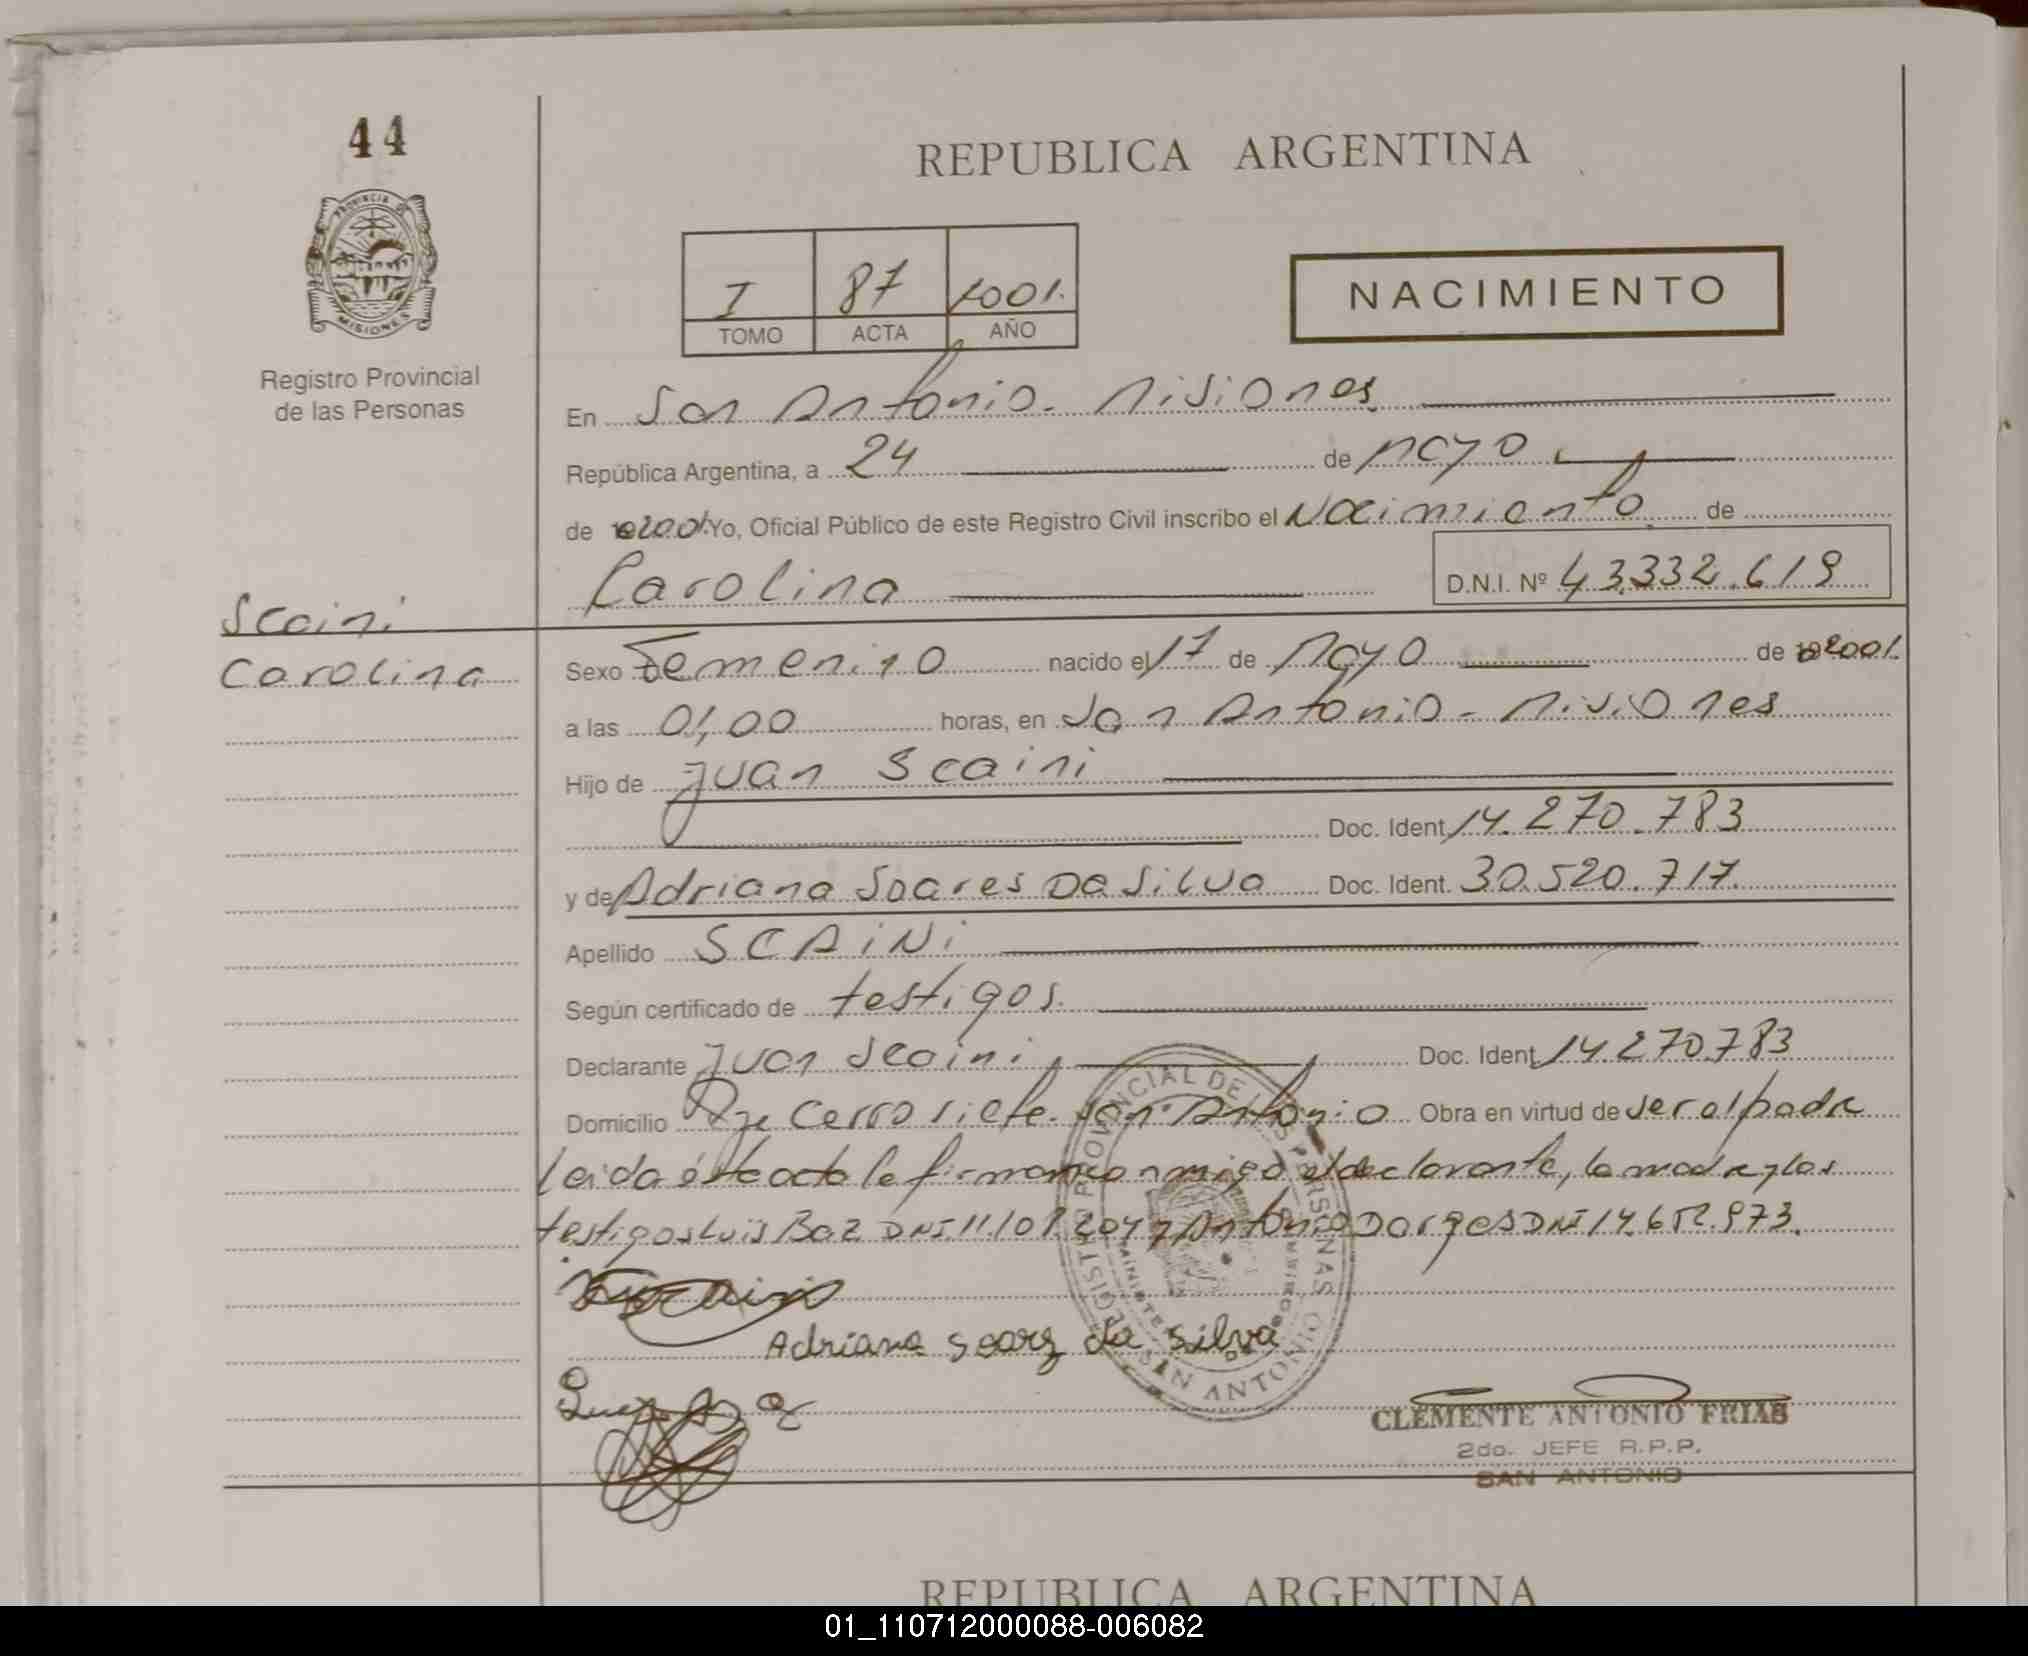 44
REPUBLICA ARGENTINA
PROVINCIA DE
MISIONES
Registro Provincial
de las Personas
I 87 2001.
TOMO ACTA AÑO
NACIMIENTO
En San Antonio. Misiones
República Argentina, a 24 de mayo
de 2001. Yo, Oficial Público de este Registro Civil inscribo el Nacimiento de
Carolina D.N.I. Nº 43.332.619
Scaini
Carolina
Sexo Femenino nacido el 17 de Mayo de 2001.
a las 01,00 horas, en San Antonio - Misiones
Hijo de Juan Scaini
Doc. Ident 14.270.783
y de Adriana Soares Da Silva Doc. Ident. 30.520.717.
Apellido SCAINI
Según certificado de testigos.
Declarante Juan Scaini Doc. Ident 14.270.783
Domicilio Pje Cerro siete. San Antonio Obra en virtud de ser el padre
leida éste acta la firman conmigo el declarante, la madre y los
testigos Luis Baz DNI 11.101.204 y Antonio Dorges DNI 14.652.973.
Adriana Soarz da Silva
REGISTRO PROVINCIAL DE LAS PERSONAS
SAN ANTONIO
CLEMENTE ANTONIO FRIAS
2do. JEFE R.P.P.
SAN ANTONIO
REPUBLICA ARGENTINA
01_110712000088-006082